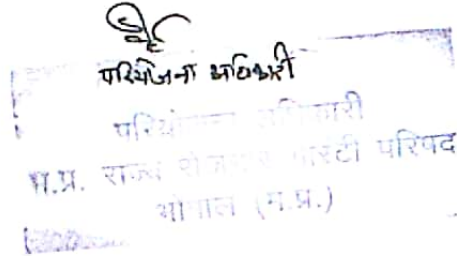 परियोजना अधिकारी
परियोजना अधिकारी
म.प्र. राज्य रोजगार गारंटी परिषद
भोपाल (म.प्र.)